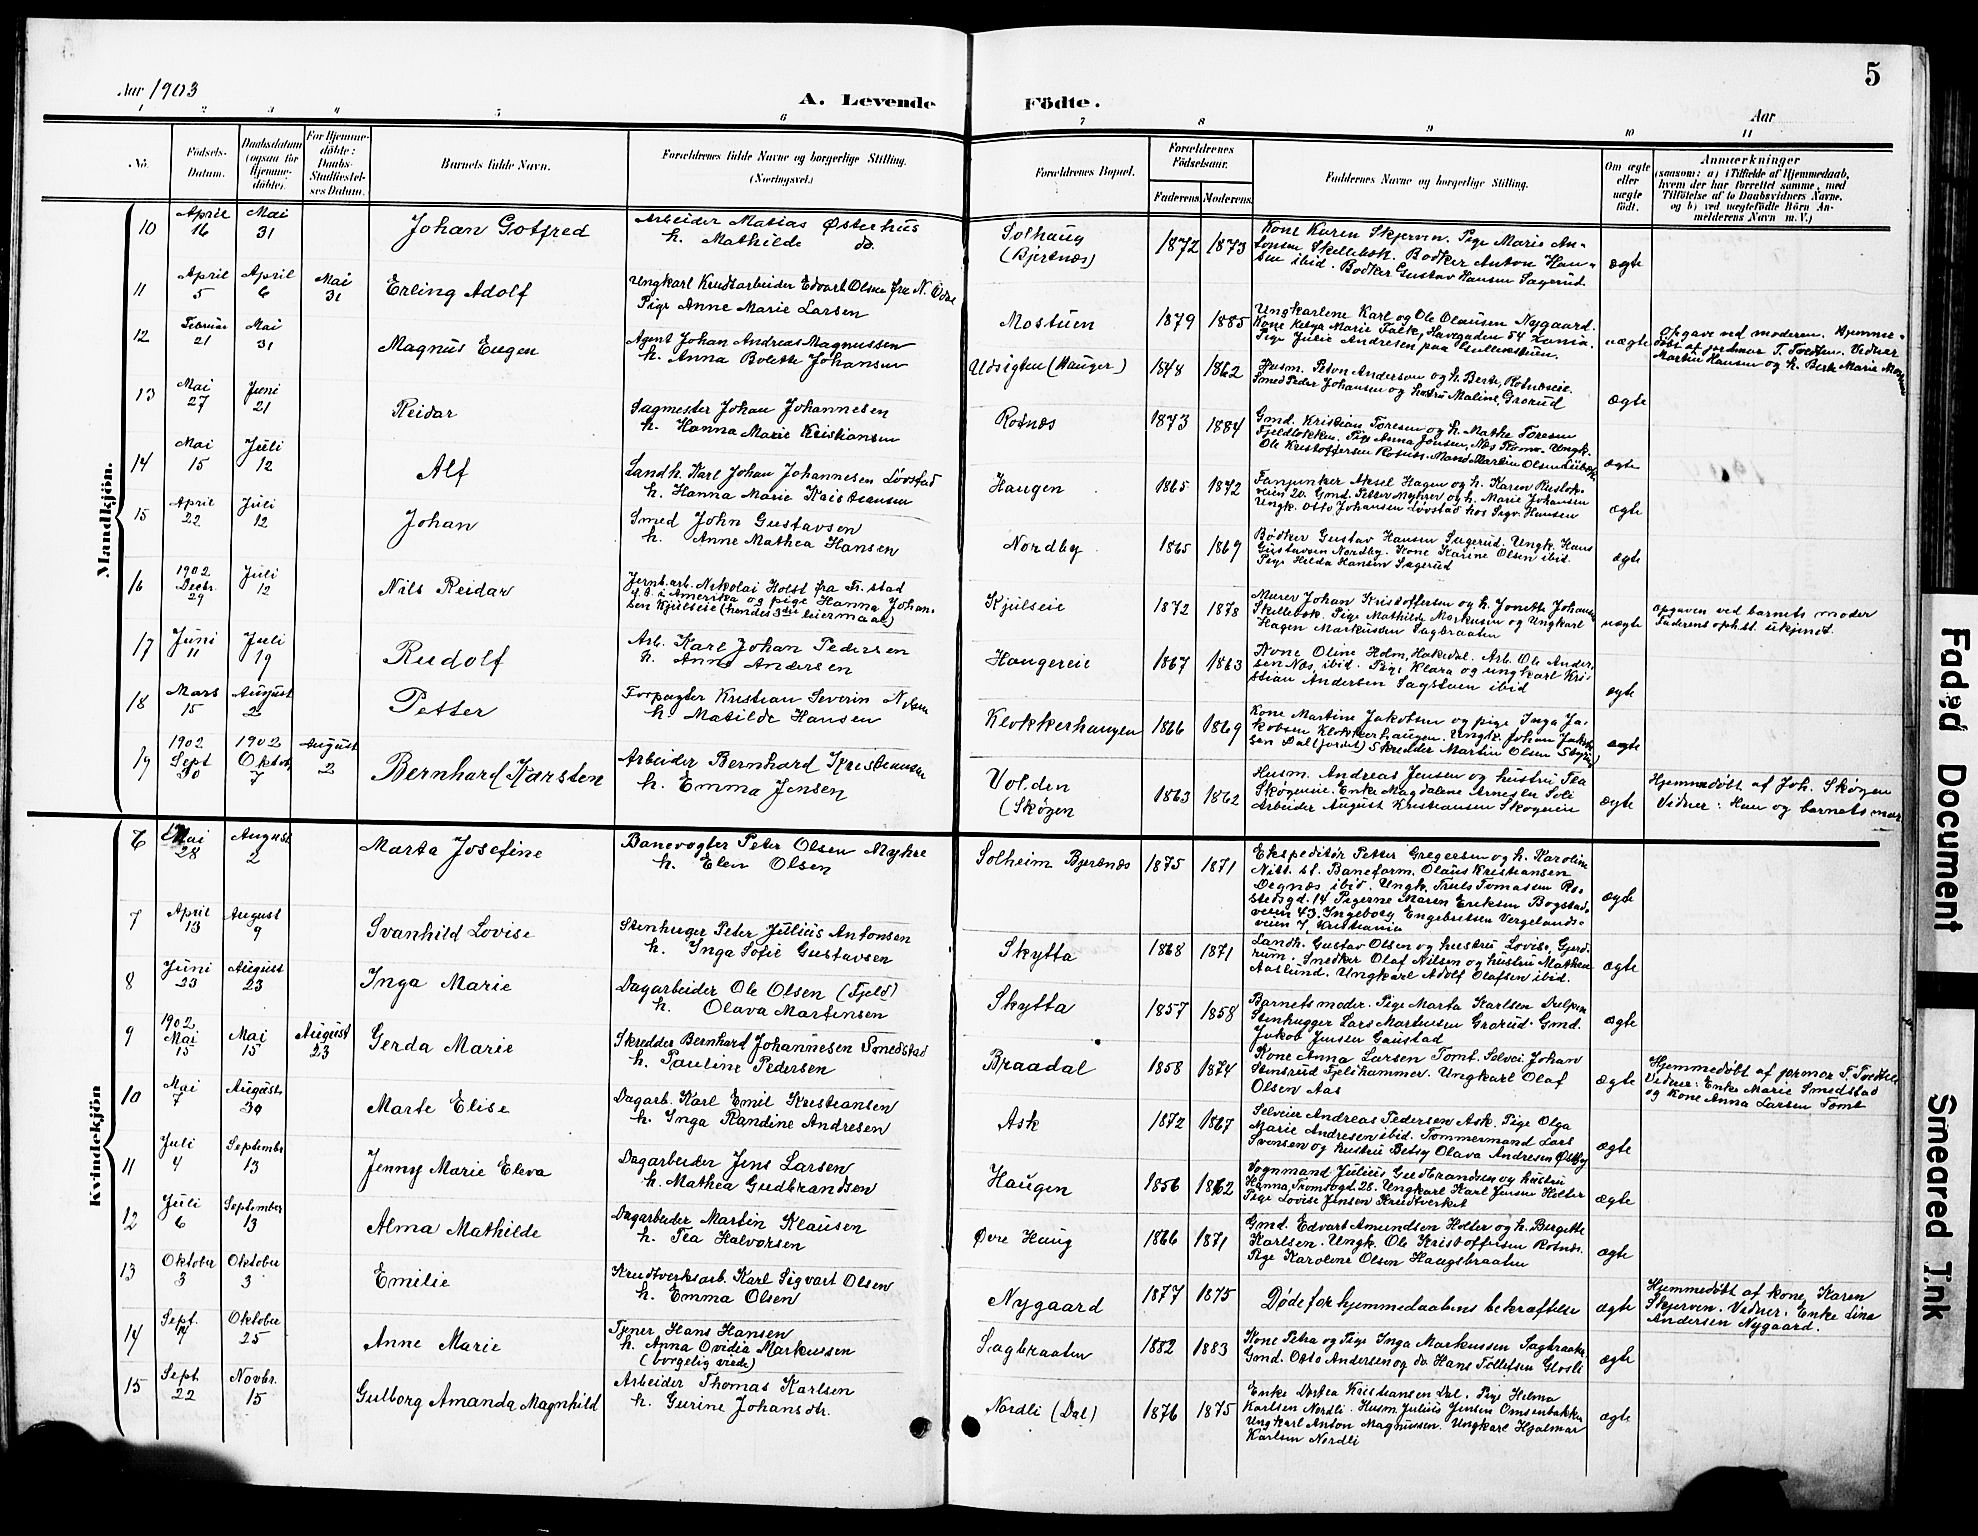 5
Aar 1903
A. Levende Födte.
Aar
1 2 3 4 5 6 7 8 9 10 11
No.
Födsels-Datum.
Daabsdatum (ogsaa for Hjemmedöbte).
For Hjemmedöbte: Daabs-Stadfæstelses Datum.
Barnets fulde Navn.
Forældrenes fulde Navne og borgerlige Stilling.
(Næringsvei.)
Forældrenes Bopæl.
Forældrenes Födselsaar.
Faderens. Moderens.
Faddernes Navne og borgerlige Stilling.
Om ægte eller uægte födt.
Anmærkninger
(saasom: a) i Tilfælde af Hjemmedaab, hvem der har forrettet samme, med Tilföielse af to Daabsvidners Navne, og b) ved uægtefödte Börn Anmelderens Navn m. V.)
Mandkjön.
10 April 16 Mai 31 Johan Gotfred
Arbeider Matias Østerhus
h. Mathilde do.
Solhaug (Bjertnæs) 1872 1873
Kone Karen Skjerven. Pige Marie An-
tonsen Skillebæk. Bødker Anton Han-
sen ibid. Bødker Gustav Hansen Sagerud.
ægte
11 April 5 April 6 Mai 31 Erling Adolf
Ungkarl Krudtarbeider Edvart Olsen fra N.
Pige Anne Marie Larsen
Mostuen 1879 1885
Ungkarlene Karl og Ole Olausen Nygaard.
Kone Marie Falk, Havegaden 54
Pige Julie Andresen paa
uægte
Opgave ved moderen. Hjemme-
døbt af jordmor T. Tvedten. Vidner
Martin Hansen og h. Berte Marie
12 Februar 21 Mai 31 Magnus Eugen
Agent Johan Andreas Magnussen
h. Anna Bolette Johansen
Udsigten (Hauger) 1848 1862
Husm. Anderson og h. Berte, Rotnæseie.
Smed Peder Johansen og hustru Maline, Grorud
ægte
13 Mai 27 Juni 21 Reidar
Sagmester Johan Johannesen
h. Hanna Marie Kristiansen
Rotnæs 1873 1884
Gmd. Kristian Toresen og h. Mathe Toresen
Fjeldløkken. Pige Anna Jensen, Næs Rom. Ungk.
Ole Kristoffersen Rotnæs. Martin Olsen
ægte
14 Mai 15 Juli 12 Alf
Landh. Karl Johan Johannesen Løvstad
h. Hanna Marie Kristiansen
Haugen 1865 1872
Fanjunker Aksel Hagen og h. Karen
veien 20. Gmd. Petter Myhrer og h. Marie Johansen
Ungk. Otto Johansen Løvstad hos Sigv. Hansen
ægte
15 April 22 Juli 12 Johan
Smed John Gustavsen
h. Anne Mathea Hansen
Nordby 1865 1869
Bødker Gustav Hansen Sagerud. Ungk. Hans
Gustavsen Nordby. Kone Karine Olsen ibid.
Pige Hilda Hansen Sagerud
ægte
16 1902 Decbr. 29 Juli 12 Nils Reidar
Jernb.arb. Nikolai Holst fra Fr.stad
f. t. i Amerika og pige Hanna Johan-
sen Kjulseie (hendes 3die leiermaal)
Kjulseie 1872 1878
Murer Johan Kristoffersen og h. Jonette Johansen
Skillebæk. Pige Mathilde Markusen og Ungkarl
Hagen Markussen Sagbraaten
uægte
opgaven ved barnets moder
Faderens oph.st. ukjendt.
17 Juni 11 Juli 19 Rudolf
Arb. Karl Johan Pedersen
h. Anne Andersen
Haugereie 1867 1863
Kone Oline Holm, Hakedal. Arb. Ole Ander-
sen Næs, ibid. Pige Klara og ungkarl Kri-
stian Andersen Sagstuen ibid
ægte
18 Mars 15 August 2 Petter
Forpagter Kristian Severin Nilsen
h. Matilde Hansen
Klokkerhaugen 1866 1869
Kone Martine Jakobsen og pige Inga Ja-
kobsen Klokkerhaugen. Ungk. Johan Jakob-
sen Dal (jordet) Skredder Martin Olsen
ægte
19 1902 Sept 30 1902 Oktob. 7 August 2 Bernhard Karsten
Arbeider Bernhard Kristiansen
h. Emma Jensen
Volden (Skøgen 1863 1862
Husm. Andreas Jensen og hustru Tea
Skøgeneie. Enke Magdalene Arnesen Soli
Arbeider August Kristiansen Skøgneie
ægte
Hjemmedøbt af Joh. Skøgen
Vidner: Han og barnets mor
Kvindekjön
6 Mai 28 August 2 Marta Josefine
Banevogter Peter Olsen Myhre
h. Elen Olsen
Solheim Bjertnæs 1875 1871
Ekspeditør Petter Gregersen og h. Karoline
Nitt. st. Baneform. Olaus Kristiansen
Degnæs ibid. Ungk. Truls Tomasen Ro-
stedsgd. 14 Pigerne Maren Eriksen Bogstad-
veien 43, Ingeborg Engebretsen Vergelands-
veien 7, Kristiania
ægte
7 April 13 August 9 Svanhild Lovise
Stenhuger Peter Julius Antonsen
h. Inga Sofie Gustavsen
Skytta 1868 1871
Landh. Gustav Olsen og hustru Lovise, Gjerd-
rum. Snedker Olaf Nilsen og hustru Mathea
Aaslund. Ungkarl Adolf Olafsen ibid.
ægte
8 Juni 23 August 23 Inga Marie
Dagarbeider Ole Olsen (Fjeld)
h. Olava Martinsen
Skytta 1857 1858
Barnets moder. Pige Marta Karlsen
Stenhugger Lars Martinsen Grorud. Gmd.
Jakob Jensen Gaustad
ægte
9 1902 Mai 15 Mai 15 August 23 Gerda Marie
Skredder Bernhard Johannesen Smedstad
h. Pauline Pedersen
Braadal 1858 1874
Kone Anna Larsen Tomt. Selvei. Johan
Stensrud Fjelihammer. Ungkarl Olaf
Olsen Aas
ægte
Hjemmedøbt af jormor T. Tvedten
Vidner: Enke Marie Smedstad
og Kone Anna Larsen Tomt
10 Mai 7 August 30 Marte Elise
Dagarb. Karl Emil Kristiansen
h. Inga Randine Andresen
Ask 1872 1867
Selveier Andreas Pedersen Ask. Pige Olga
Marie Andresen ibid. Tømmermand Lars
Svensen og hustru Betsy Olava Andresen Østby
ægte
11 Juli 4 September 13 Jenny Marie Eleva
Dagarbeider Jens Larsen
h. Mathea Gudbrandsen
Haugen 1856 1862
Vognmand Julius Gudbrandsen og hustru
Hanna, Tromsøgd. 28. Ungkarl Karl Jensen Holter
Pige Lovise Jensen Krudtverket
ægte
12 Juli 6 September 13 Alma Mathilde
Dagarbeider Martin Klausen
h. Tea Halvorsen
Øvre Haug 1866 1871
Gmd. Edvart Amundsen Holter og h. Bergitte
Karlsen. Ungk. Ole Kristoffersen Rotnæs.
Pige Karoline Olsen Haugsbraaten
ægte
13 Oktober 3 Oktober 3 Emilie
Krudtverksarb. Karl Sigvart Olsen
h. Emma Olsen
Nygaard 1877 1875
Døde før hjemmedaabens bekræftelse
ægte
Hjemmedøbt af kone Karen
Skjerven. Vidner: Enke Lina
Andersen Nygaard.
14 Sept. 7 Oktober 25 Anne Marie
Tjener Hans Hansen
h. Anna Ovidia Markussen
(borgelig viede)
Sagbraaten 1882 1883
Kone Petra og Pige Inga Markussen Sagbraaten
Gmd. Otto Andersen og do Hans Tollefsen Glosli
ægte
15 Sept 22 Novbr. 15 Gulborg Amanda Magnhild
Arbeider Thomas Karlsen
h. Gurine Johansdtr.
Nordli (Dal) 1876 1875
Enke Dortea Kristiansen Dal. Pige Helma
Karlsen Nordli. Husm. Julius Jensen Omsenbakken
Ungkarl Anton Magnussen. Ungkarl Hjalmar
Karlsen Nordli
ægte
Faded Document
Smeared Ink